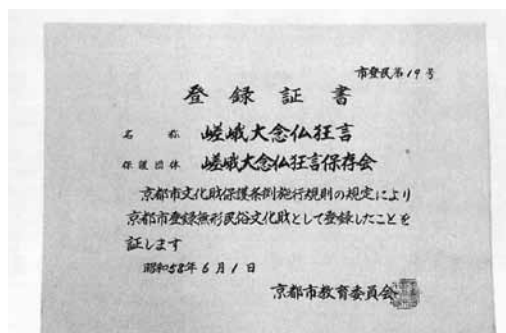 市登民第19号
登録証書
名称 嵯峨大念仏狂言
保護団体 嵯峨大念仏狂言保存会
京都市文化財保護条例施行規則の規定により
京都市登録無形民俗文化財として登録したことを
証します
昭和58年6月1日
京都市教育委員会